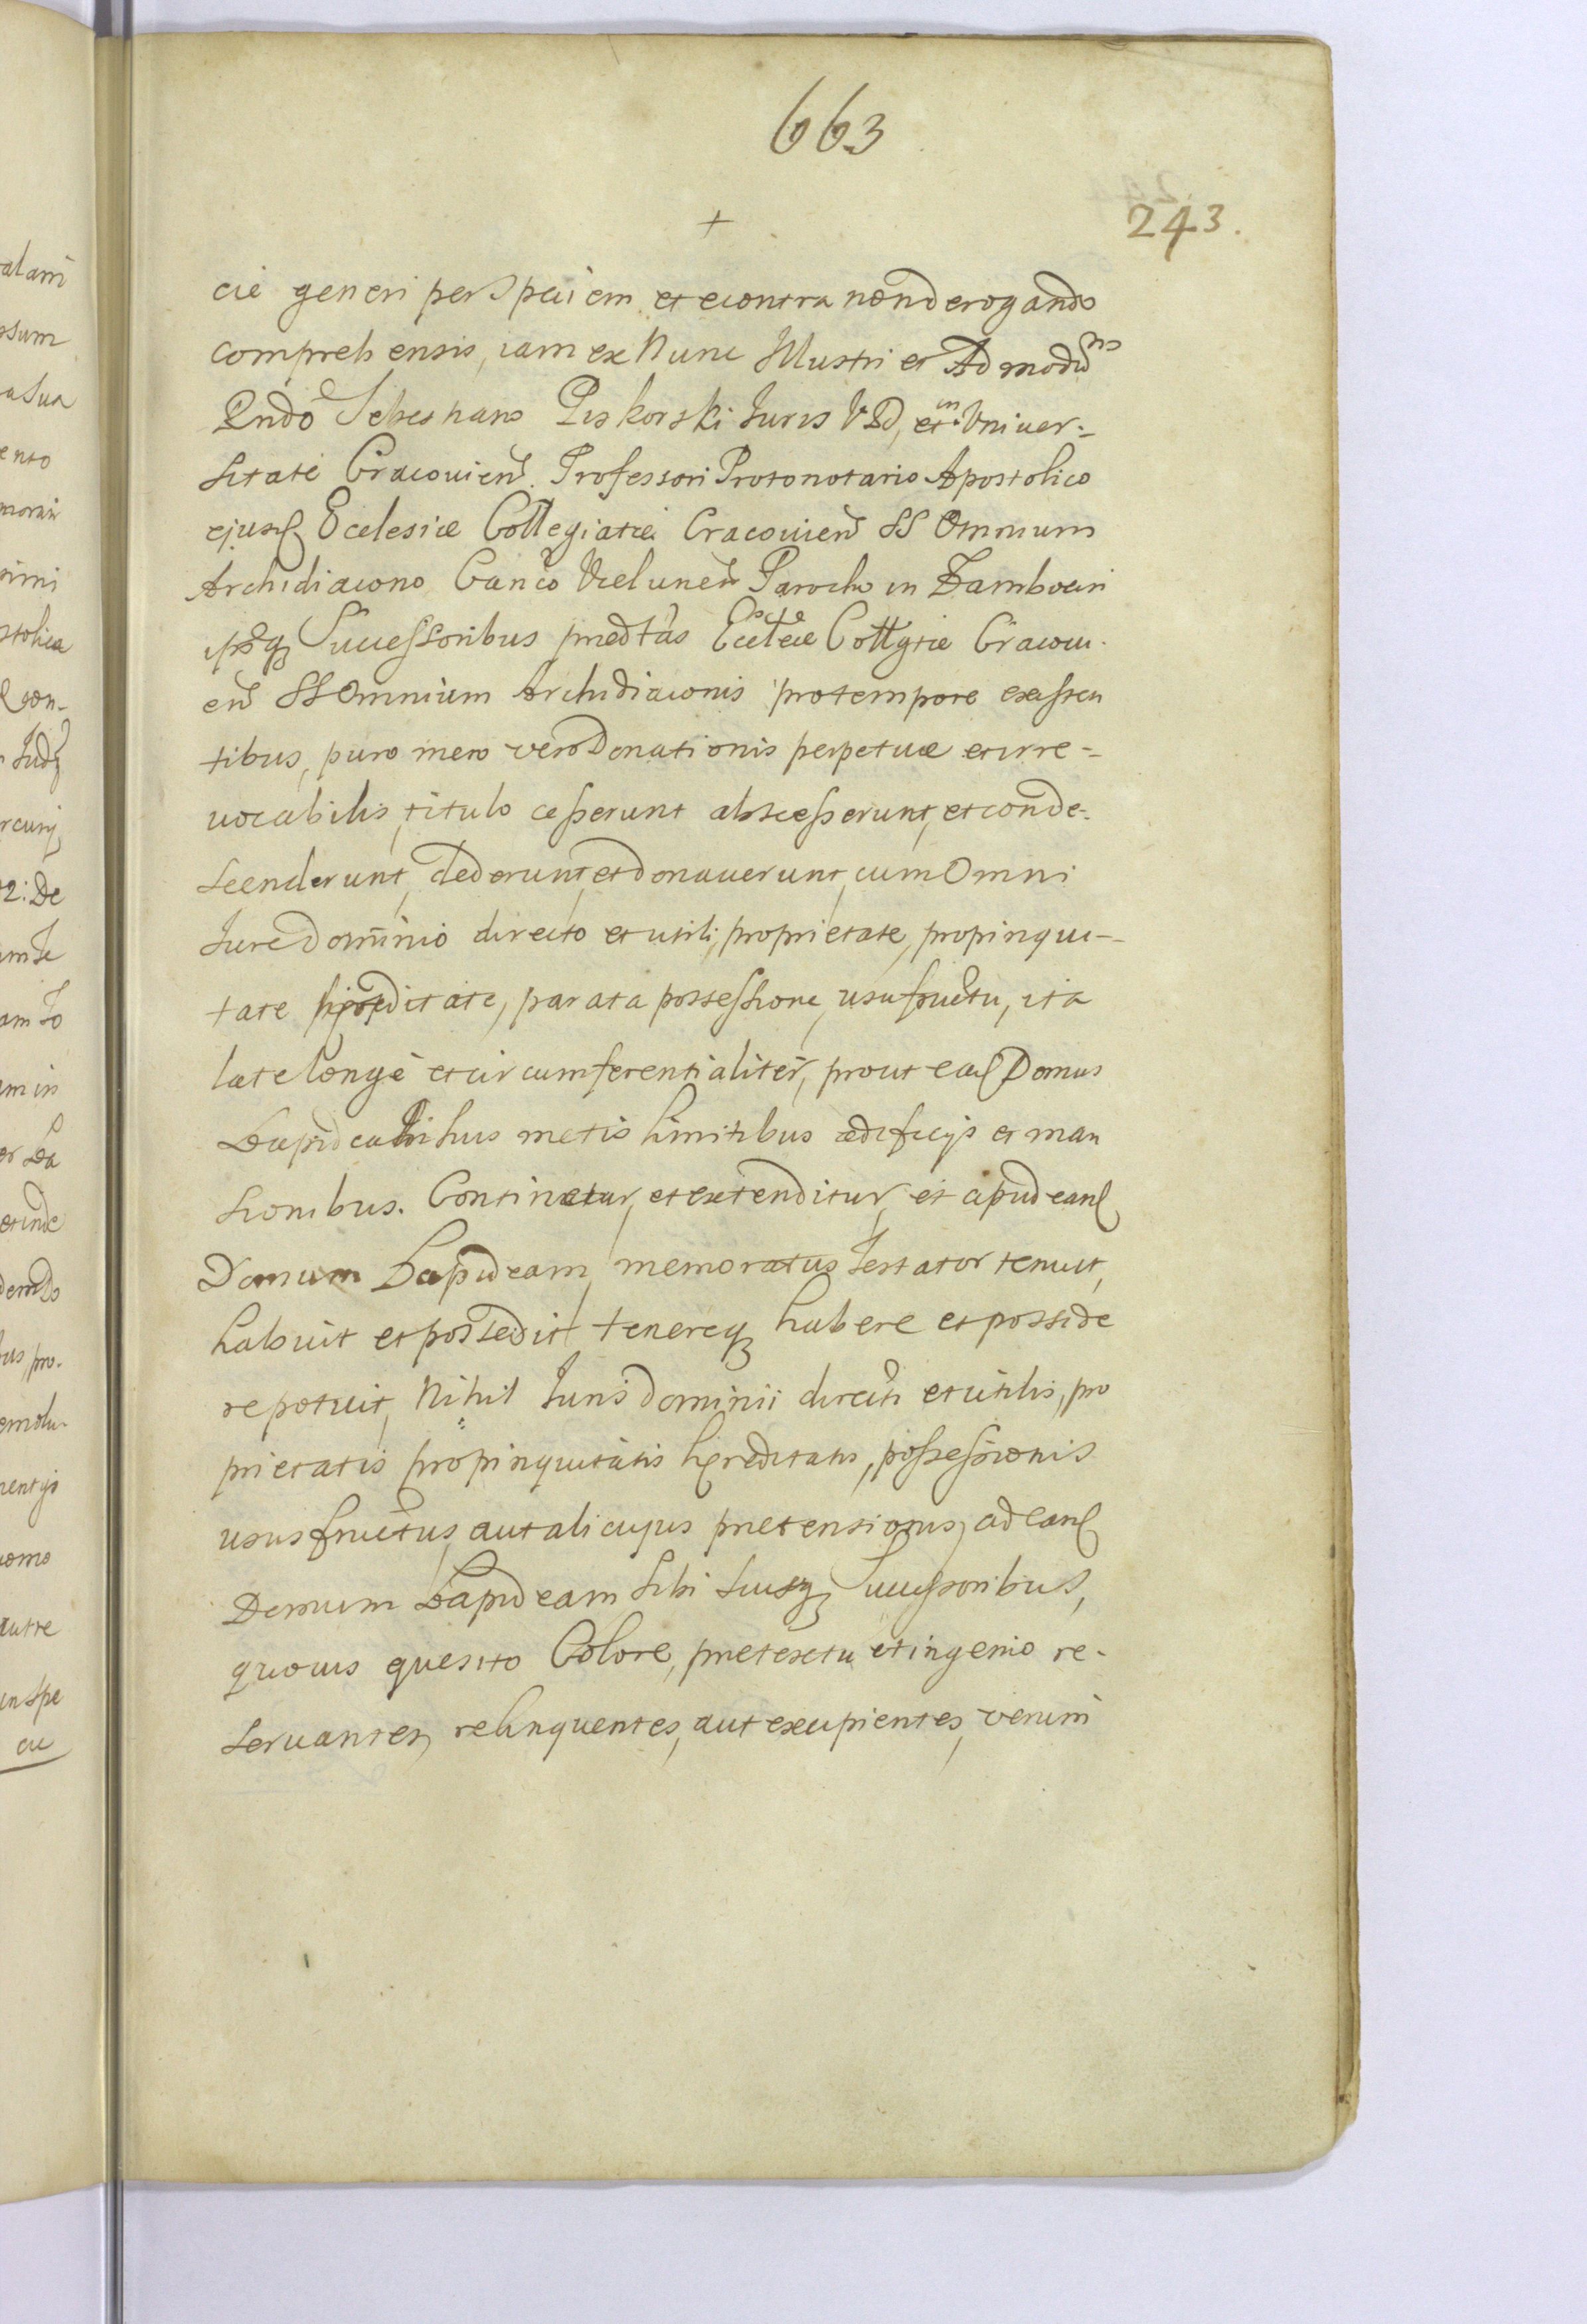 663
+
243.
cie generi per Speciem et econtra non derogando
comprehensis, iam ex Nunc Illustri et Admodũ
Rndo Sebestiano Piskorski Iuris VD, et in Vniver-
sitate Cracovien. Professori Protonotario Apostolico
ejusd Ecclesiæ Collegiatæ Cracovien SS Omnium
Archidiacono Canco Vielunen Parocho in Zambocin
ipsoq Successoribus predtas Ecclæ Collgtæ Cracovi.
en SS Omnium Archidiaconis pro tempore existen
tibus, puro mero vero Donationis perpetuæ et irre-
vocabilis, titulo cesserunt abscesserunt, et conde-
scenderunt, dederunt, et donaverunt, cum Omni
Iure dominio directo et utili, proprietate, propinqui-
tate hæreditate, parata possessione, usufructu, ita
late longè et circumferentialiter, prout ead Domus
Lapidea metis limitibus ædificijs et man
sionibus. Continetur, et extenditur, et apud eand
Domum Lapideam, memoratus Testator tenuit,
habuit et possedit tenereq habere et posside
re potuit, Nihil Iuris dominii directi et utilis, pro
prietatis propinquitatis hæreditatis, possessionis
ususfructus, aut alicujus pretensionis, ad eand
Domum Lapideam sibi suisq Successoribus,
quovis quesito Colore, pretextu et ingenio re-
servantes, relinquentes, aut excipientes, verum